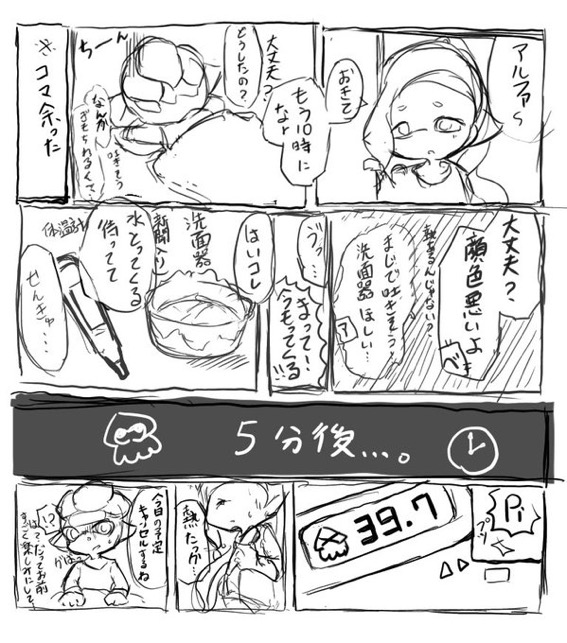 アルファ〜
おきて
もう10時に
なr
大丈夫？
どうしたの？
ちーん
なんか
吐きそう
コマ余った
大丈夫？
顔色悪いよ
ベ
熱あるんじゃない？
まじで吐きそう…
洗面器ほしい…
ア
ブッ…
まってい
今もってくる!!
はいコレ
洗面器
新聞入り
水とってくる
待ってて
体温計
せんきゅ…
5分後…。
Pi
39.7
熱たっか…
今日の予定
キャンセルするね
!?
は？だってお前
すごく楽しみにして